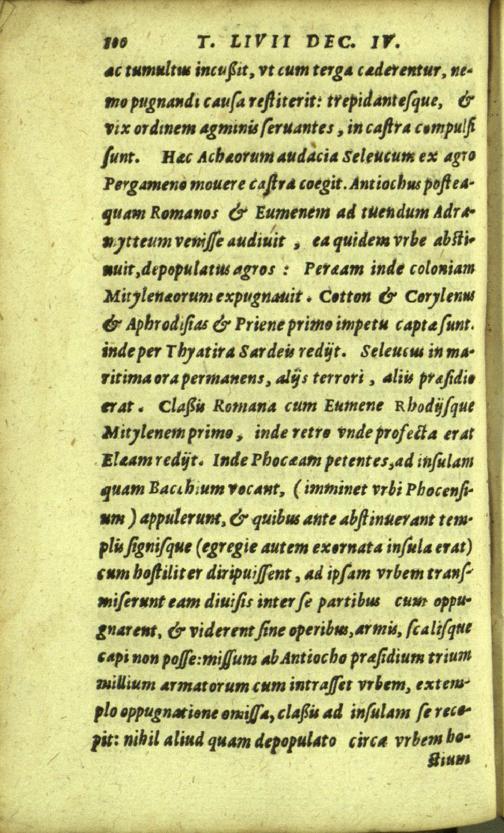 100 T. LIVII DEC. IV.
ac tumultus incußit, vt cum terga cæderentur, ne-
mo pugnandi causa restiterit: trepidantesque, &
vix ordinem agminis seruantes, in castra compulsi
sunt. Hæc Achæorum audacia Seleucum ex agro
Pergameno mouere castra coegit. Antiochus postea-
quam Romanos & Eumenem ad tuendum Adra-
mytteum venisse audiuit, ea quidem vrbe absti-
nuit, depopulatus agros: Peræam inde coloniam
Mitylenæorum expugnauit. Cotton & Corylenus
& Aphrodisias & Priene primo impetu captæ sunt.
inde per Thyatira Sardeis redijt. Seleucus in ma-
ritima ora permanens, alijs terrori, aliis præsidio
erat. Claßis Romana cum Eumene Rhodijsque
Mitylenem primo, inde retro vnde profecta erat
Elæam redijt. Inde Phocæam petentes, ad insulam
quam Bacchium vocant, (imminet vrbi Phocensi-
um) appulerunt, & quibus ante abstinuerant tem-
plis signisque (egregie autem exornata insula erat)
cum hostiliter diripuissent, ad ipsam vrbem trans-
miserunt eam diuisis inter se partibus cum oppu-
gnarent, & viderent sine operibus, armis, scalisque
capi non posse: missum ab Antiocho præsidium trium
millium armatorum cum intrasset vrbem, extem-
plo oppugnatione omissa, claßis ad insulam se rece-
pit: nihil aliud quam depopulato circa vrbem ho-
stium